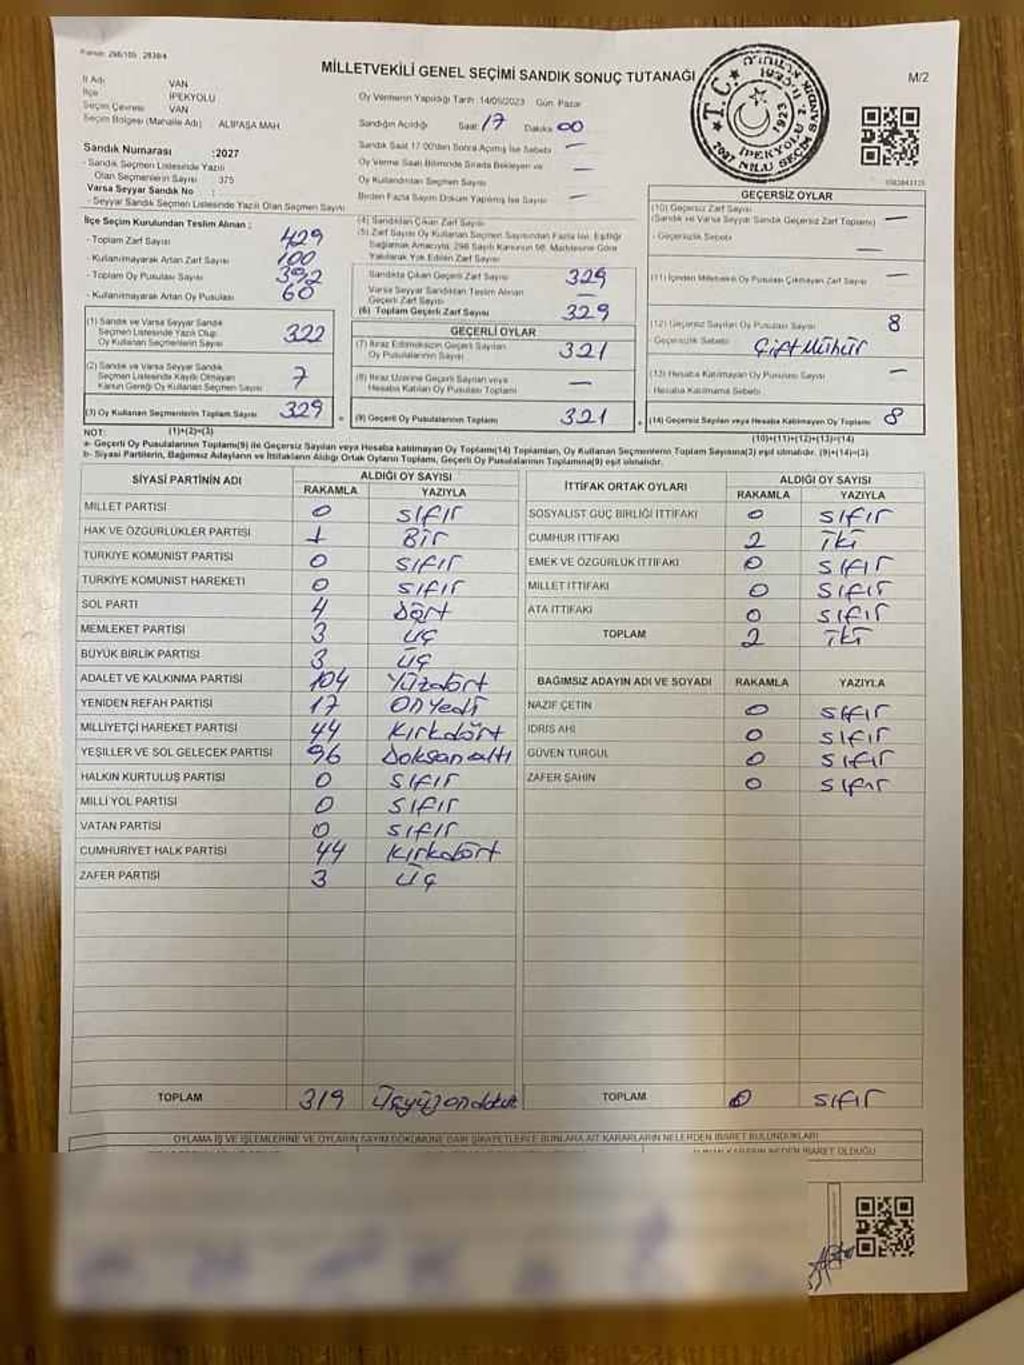 MİLLETVEKİLİ GENEL SEÇİMİ SANDIK SONUÇ TUTANAĞI
M/2
İl Adı VAN
İlçe İPEKYOLU
Seçim Çevresi VAN
Seçim Bölgesi (Mahalle Adı) ALİPAŞA MAH.
Sandık Numarası :2027
- Sandık Seçmen Listesinde Yazılı
Olan Seçmenlerin Sayısı : 375
Varsa Seyyar Sandık No :
- Seyyar Sandık Seçmen Listesinde Yazılı Olan Seçmen Sayısı
Oy Vermenin Yapıldığı Tarih :14/05/2023 Gün: Pazar
Sandığın Açıldığı Saat: 17 Dakika: 00
Sandık Saat 17.00'den Sonra Açılmış İse Sebebi —
Oy Verme Saati Bitiminde Sırada Bekleyen ve
Oy Kullandırılan Seçmen Sayısı —
Birden Fazla Sayım Döküm Yapılmış İse Sayısı —
T.C.
1923
İPEKYOLU
İlçe Seçim Kurulundan Teslim Alınan :
- Toplam Zarf Sayısı 429
- Kullanılmayarak Artan Zarf Sayısı 100
- Toplam Oy Pusulası Sayısı
- Kullanılmayarak Artan Oy Pusulası 60
(1) Sandık ve Varsa Seyyar Sandık
Seçmen Listesinde Yazılı Olup
Oy Kullanan Seçmenlerin Sayısı 322
(2) Sandık ve Varsa Seyyar Sandık
Seçmen Listesinde Kayıtlı Olmayan
Kanun Gereği Oy Kullanan Seçmen Sayısı 7
(3) Oy Kullanan Seçmenlerin Toplam Sayısı 329
(4) Sandıktan Çıkan Zarf Sayısı
(5) Zarf Sayısı Oy Kullanan Seçmen Sayısından Fazla İse, Eşitliği
Sağlamak Amacıyla, 298 Sayılı Kanunun 98. Maddesine Göre
Yakılarak Yok Edilen Zarf Sayısı
Sandıkta Çıkan Geçerli Zarf Sayısı 329
Varsa Seyyar Sandıktan Teslim Alınan
Geçerli Zarf Sayısı —
(6) Toplam Geçerli Zarf Sayısı 329
GEÇERLİ OYLAR
(7) İtiraz Edilmeksizin Geçerli Sayılan
Oy Pusulalarının Sayısı 321
(8) İtiraz Üzerine Geçerli Sayılan veya
Hesaba Katılan Oy Pusulaları Toplamı —
(9) Geçerli Oy Pusulalarının Toplamı 321
GEÇERSİZ OYLAR
(10) Geçersiz Zarf Sayısı
(Sandık ve Varsa Seyyar Sandık Geçersiz Zarf Toplamı) —
- Geçersizlik Sebebi —
(11) İçinden Milletvekili Oy Pusulası Çıkmayan Zarf Sayısı —
(12) Geçersiz Sayılan Oy Pusulası Sayısı 8
- Geçersizlik Sebebi Çift Mühür
(13) Hesaba Katılmayan Oy Pusulası Sayısı —
Hesaba Katılmama Sebebi
(14) Geçersiz Sayılan veya Hesaba Katılmayan Oy Toplamı 8
NOT: (1)+(2)=(3)
(10)+(11)+(12)+(13)=(14)
a- Geçerli Oy Pusulalarının Toplamı(9) ile Geçersiz Sayılan veya Hesaba katılmayan Oy Toplamı(14) Toplamları, Oy Kullanan Seçmenlerin Toplam Sayısına(3) eşit olmalıdır. (9)+(14)=(3)
b- Siyasi Partilerin, Bağımsız Adayların ve İttifakların Aldığı Ortak Oyların Toplamı, Geçerli Oy Pusulalarının Toplamına(9) eşit olmalıdır.
SİYASİ PARTİNİN ADI ALDIĞI OY SAYISI
RAKAMLA YAZIYLA
MİLLET PARTİSİ 0 sıfır
HAK VE ÖZGÜRLÜKLER PARTİSİ 1 Bir
TÜRKİYE KOMÜNİST PARTİSİ 0 sıfır
TÜRKİYE KOMÜNİST HAREKETİ 0 sıfır
SOL PARTİ 4 dört
MEMLEKET PARTİSİ 3 üç
BÜYÜK BİRLİK PARTİSİ 3 üç
ADALET VE KALKINMA PARTİSİ 104 Yüzdört
YENİDEN REFAH PARTİSİ 17 Onyedi
MİLLİYETÇİ HAREKET PARTİSİ 44 Kırkdört
YEŞİLLER VE SOL GELECEK PARTİSİ 96 Doksanaltı
HALKIN KURTULUŞ PARTİSİ 0 sıfır
MİLLİ YOL PARTİSİ 0 sıfır
VATAN PARTİSİ 0 sıfır
CUMHURİYET HALK PARTİSİ 44 Kırkdört
ZAFER PARTİSİ 3 üç
TOPLAM 319 Üçyüzondokuz
İTTİFAK ORTAK OYLARI ALDIĞI OY SAYISI
RAKAMLA YAZIYLA
SOSYALİST GÜÇ BİRLİĞİ İTTİFAKI 0 sıfır
CUMHUR İTTİFAKI 2 iki
EMEK VE ÖZGÜRLÜK İTTİFAKI 0 sıfır
MİLLET İTTİFAKI 0 sıfır
ATA İTTİFAKI 0 sıfır
TOPLAM 2 iki
BAĞIMSIZ ADAYIN ADI VE SOYADI RAKAMLA YAZIYLA
NAZİF ÇETİN 0 sıfır
İDRİS AHİ 0 sıfır
GÜVEN TURGUL 0 sıfır
ZAFER ŞAHİN 0 sıfır
TOPLAM 0 sıfır
OYLAMA İŞ VE İŞLEMLERİNE VE OYLARIN SAYIM DÖKÜMÜNE DAİR ŞİKAYETLERLE BUNLARA AİT KARARLARIN NELERDEN İBARET BULUNDUKLARI